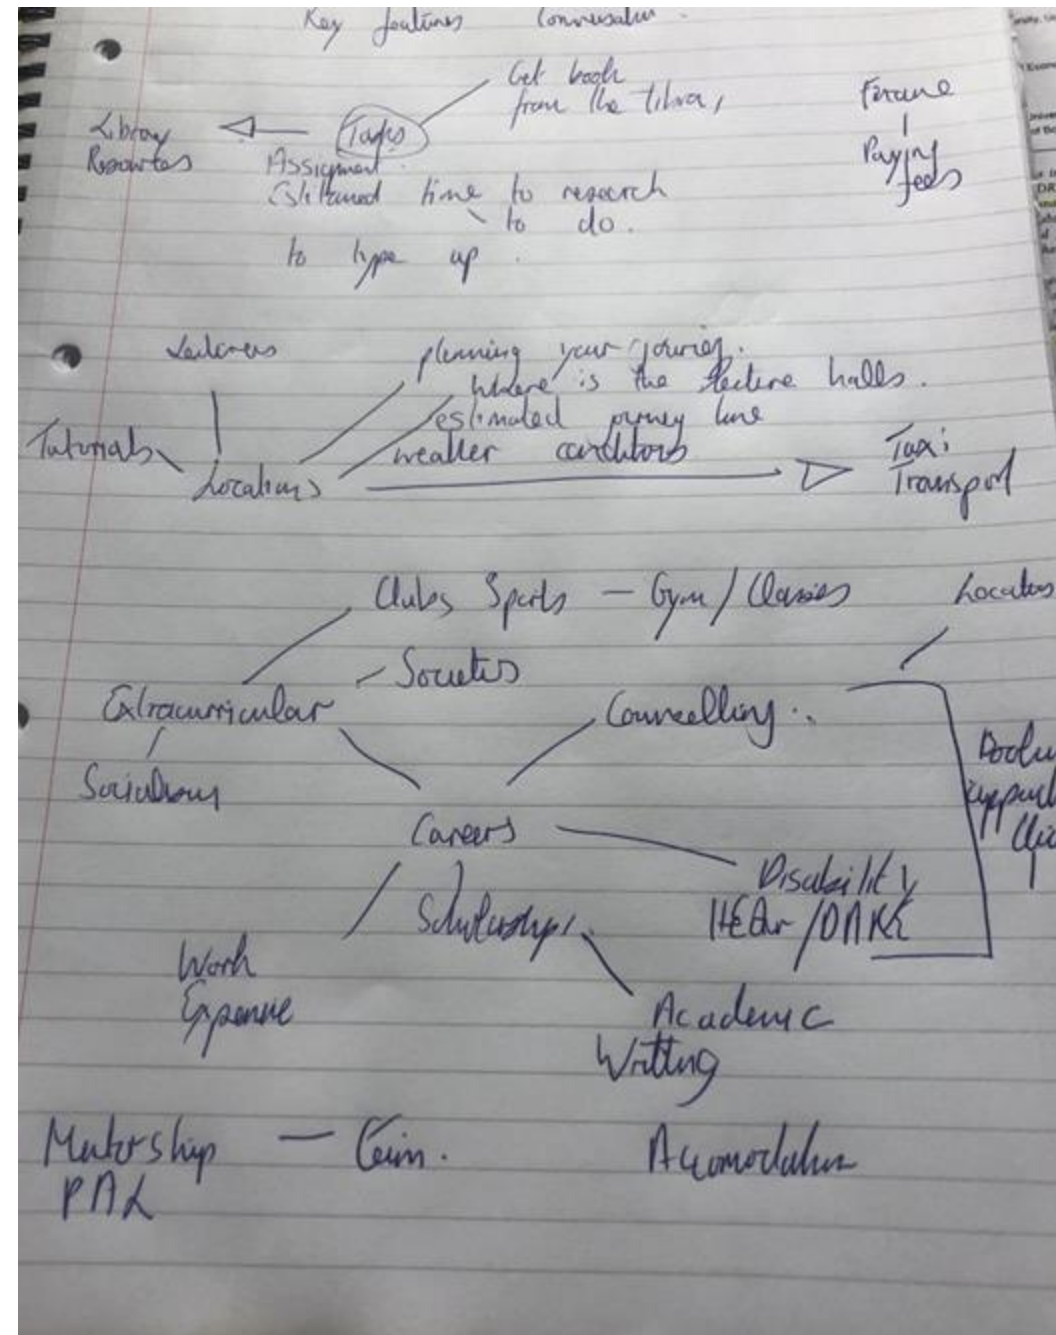 Key features Conversation
Get book
from the
Library
Resources
Tasks
Finance
Paying
fees
Assignment
Estimated time to research
to do.
to type up
Lectures
planning your
where is the lecture halls.
estimated journey time
weather conditions
Tutorials
Locations
Taxi
Transport
Clubs Sports - Gym / Classes
Locations
Societies
Extracurricular
Councelling
Socialising
Careers
Disability
Scholarships
Work
Experience
Academic
Writting
Mentorship
PAL
Accomodation